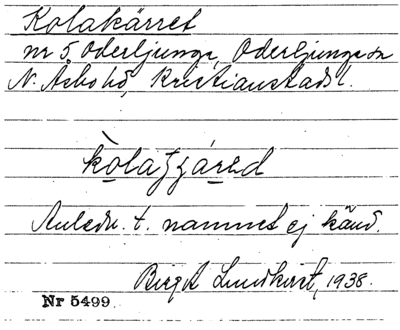 Kolakärret
nr 5, Oderljunga, Oderljunga sn
N. Åsbo hd, Kristianstads l.
Anledn. t. namnet ej känd.
Birgit Lundkvist, 1938.
Nr 5499